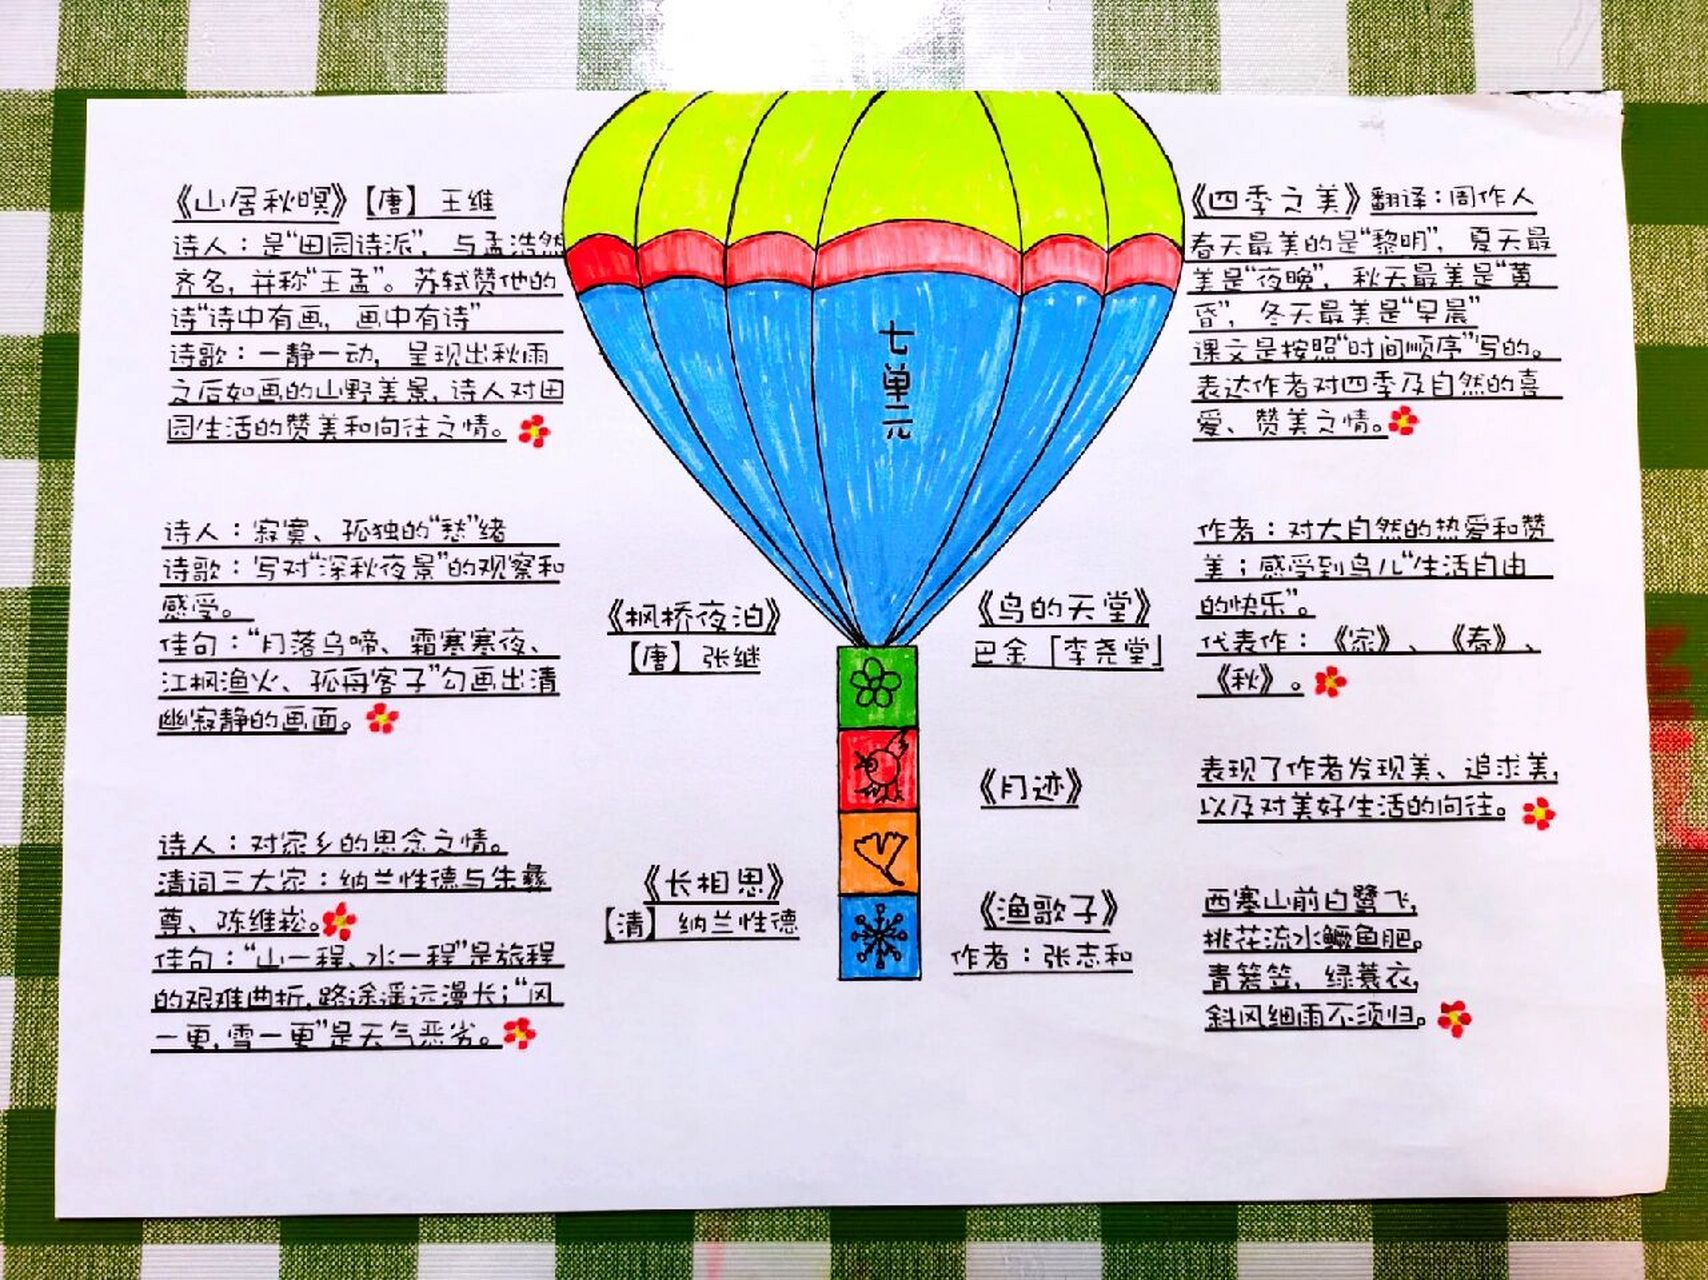 《山居秋暝》【唐】王维
诗人：是“田园诗派”，与孟浩然
齐名，并称“王孟”。苏轼赞他的
诗“诗中有画，画中有诗”
诗歌：一静一动，呈现出秋雨
之后如画的山野美景，诗人对田
园生活的赞美和向往之情。
诗人：寂寞、孤独的“愁”绪
诗歌：写对“深秋夜景”的观察和
感受。
佳句：“月落乌啼、霜寒寒夜、
江枫渔火、孤舟客子”勾画出清
幽寂静的画面。
诗人：对家乡的思念之情。
清词三大家：纳兰性德与朱彝
尊、陈维崧。
佳句：“山一程、水一程”是旅程
的艰难曲折，路途遥远漫长；“风
一更，雪一更”是天气恶劣。
《枫桥夜泊》
【唐】张继
《长相思》
【清】纳兰性德
七单元
《鸟的天堂》
巴金「李尧堂」
《月迹》
《渔歌子》
作者：张志和
《四季之美》翻译：周作人
春天最美的是“黎明”，夏天最
美是“夜晚”，秋天最美是“黄
昏”，冬天最美是“早晨”
课文是按照“时间顺序”写的。
表达作者对四季及自然的喜
爱、赞美之情。
作者：对大自然的热爱和赞
美；感受到鸟儿“生活自由
的快乐”。
代表作：《家》、《春》、
《秋》。
表现了作者发现美、追求美，
以及对美好生活的向往。
西塞山前白鹭飞，
桃花流水鳜鱼肥。
青箬笠，绿蓑衣，
斜风细雨不须归。